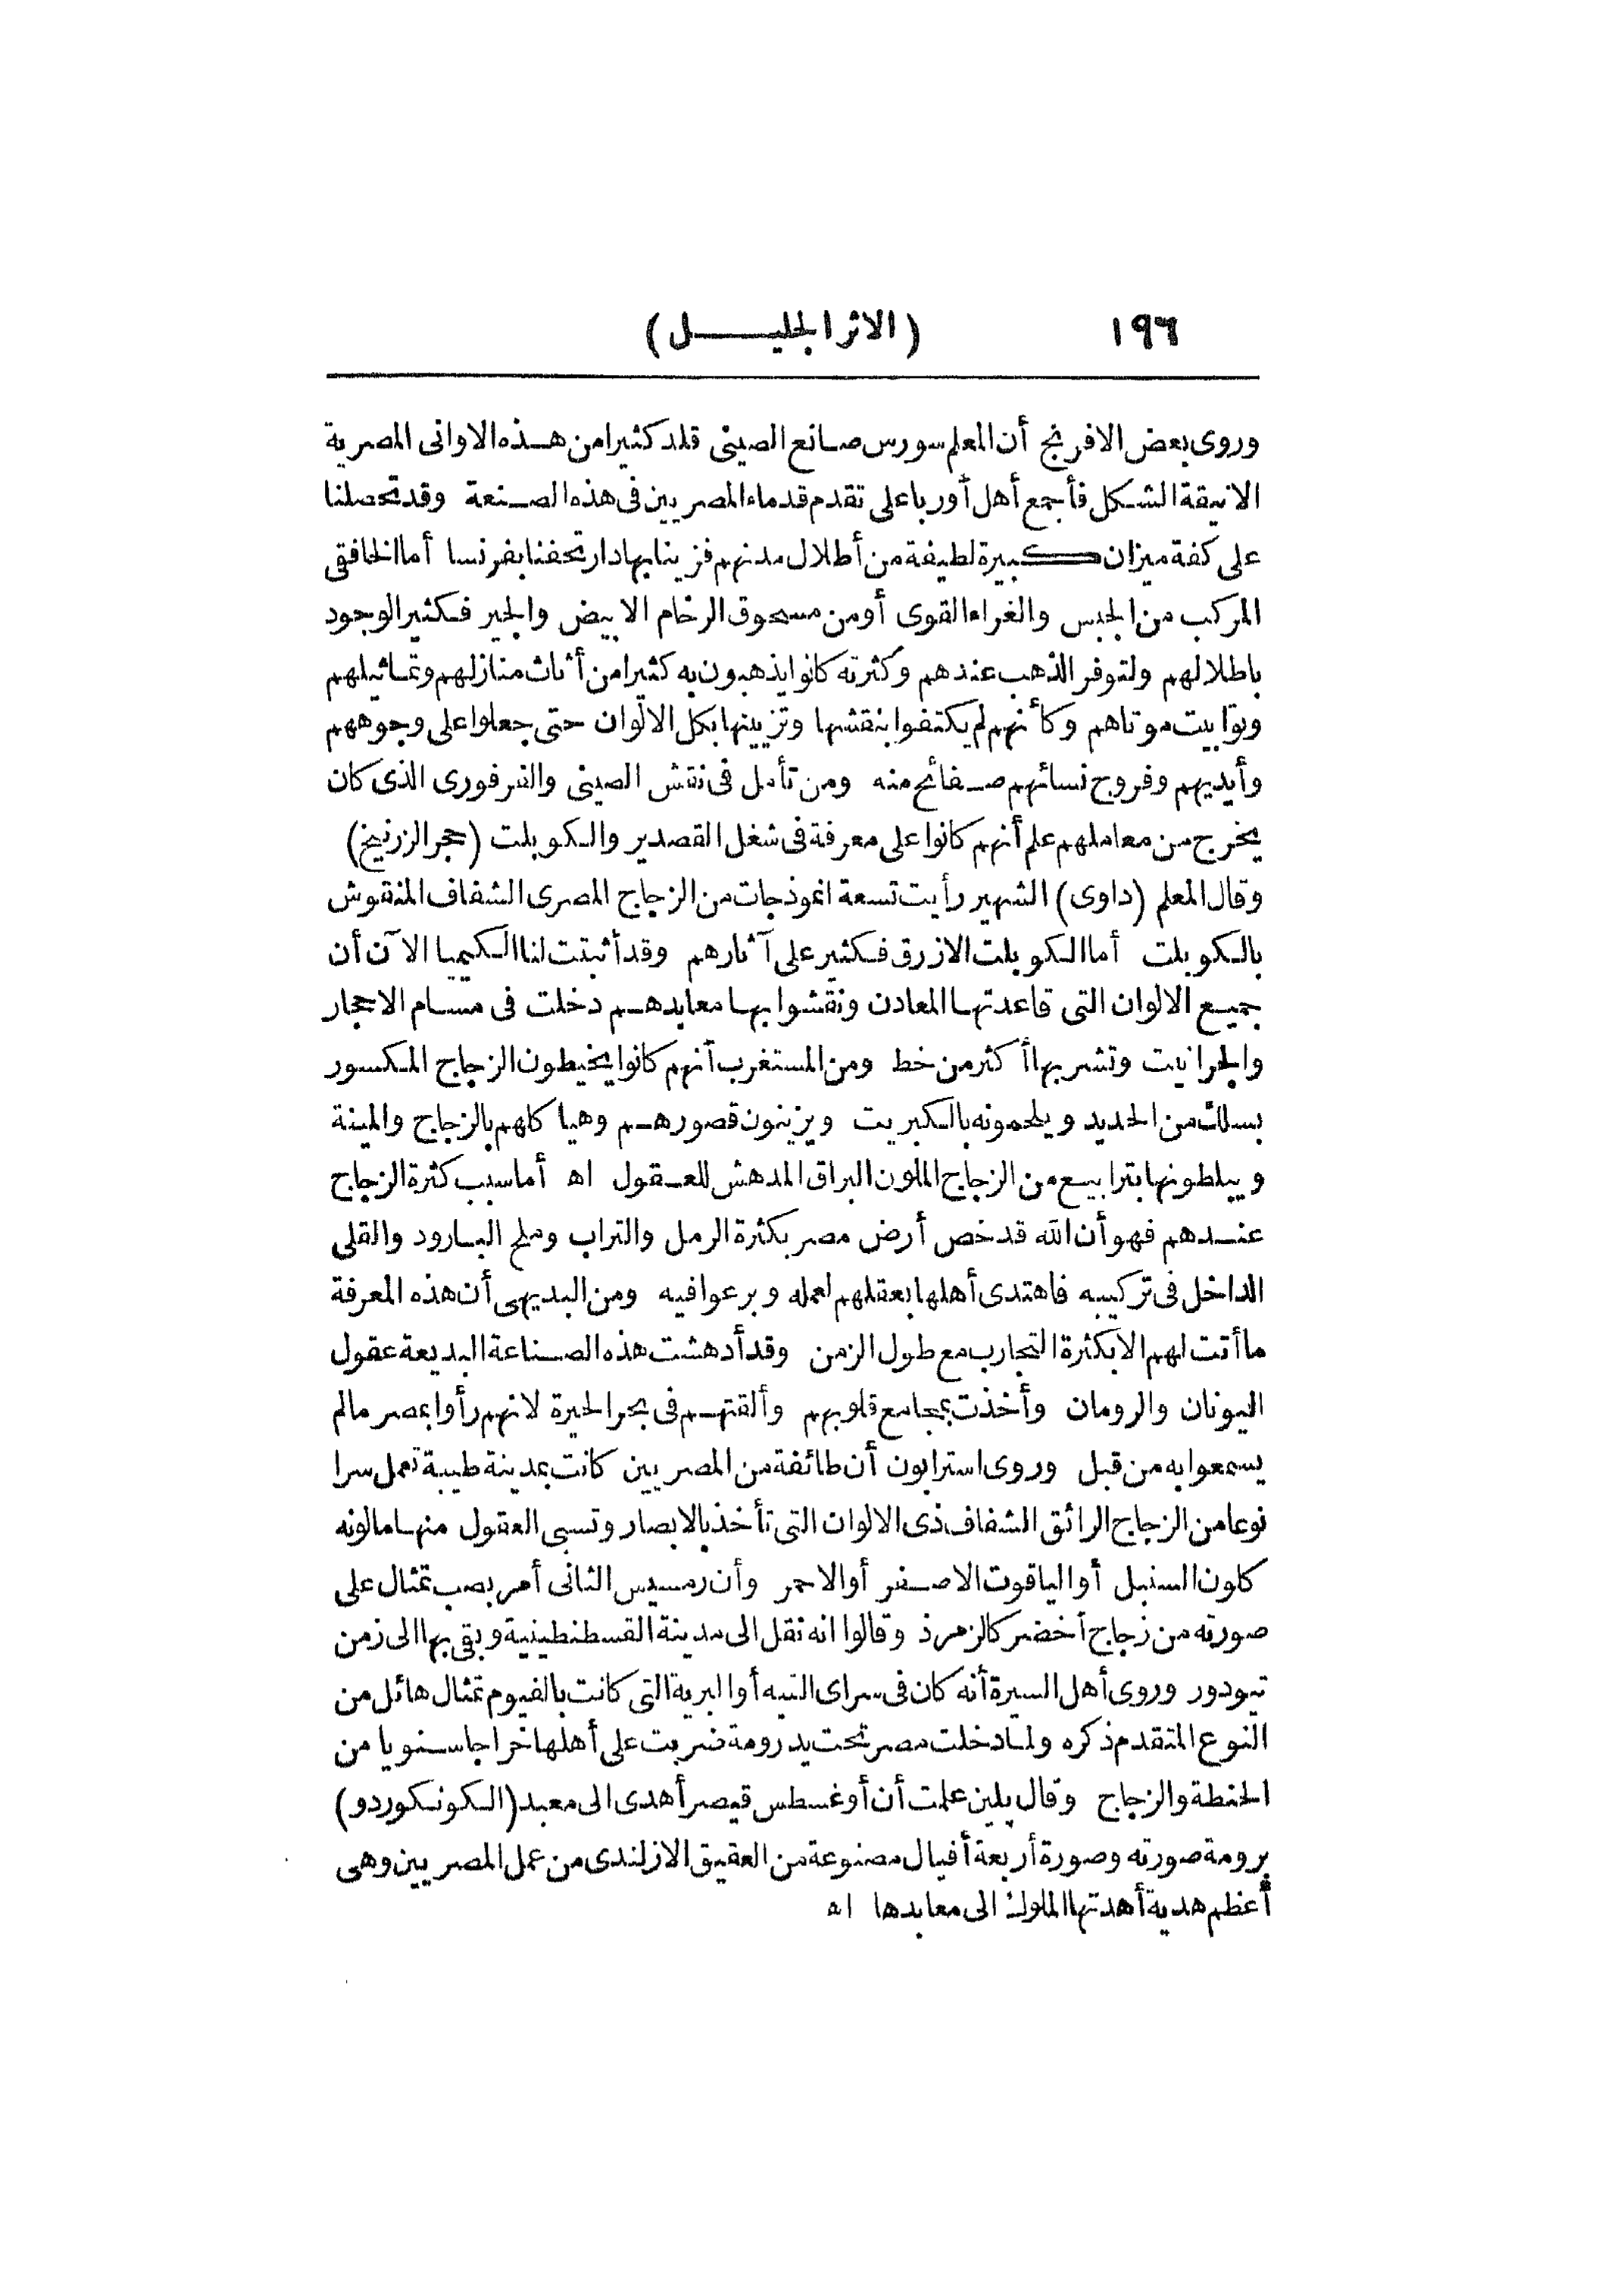 ١٩٦ (الاثر الجليل)
وروى بعض الافرنج أن المعلم سورس صانع الصينى قلد كثيرا من هذه الاوانى المصرية
الانيقة الشكل فأجمع أهل أوربا على تقدم قدماء المصريين فى هذه الصنعة وقد تحصلنا
على كفة ميزان كبيرة لطيفة من أطلال مدنهم فزينا بها دار تحفنا بفرنسا أما الخافقى
المركب من الجبس والغراء القوى أو من مسحوق الرخام الابيض والجير فكثير الوجود
باطلالهم ولتوفر الذهب عندهم وكثرته كانوا يذهبون به كثيرا من أثاث منازلهم وتماثيلهم
وتوابيت موتاهم وكأنهم لم يكتفوا بنقشها وتزيينها بكل الالوان حتى جعلوا على وجوههم
وأيديهم وفروج نسائهم صفائح منه ومن تأمل فى نقش الصينى والفرفورى الذى كان
يخرج من معاملهم علم أنهم كانوا على معرفة فى شغل القصدير والكوبلت (حجر الزرنيخ)
وقال المعلم (داوى) الشهير رأيت تسعة انموذجات من الزجاج المصرى الشفاف المنقوش
بالكوبلت أما الكوبلت الازرق فكثير على آثارهم وقد أثبتت لنا الكيميا الآن أن
جميع الالوان التى قاعدتها المعادن ونقشوا بها معابدهم دخلت فى مسام الاحجار
والجرانيت وتشربها أكثر من خط ومن المستغرب أنهم كانوا يخيطون الزجاج المكسور
بسلك من الحديد ويلحمونه بالكبريت ويزينون قصورهم وهياكلهم بالزجاج والمينة
ويبلطونها بترابيع من الزجاج الملون البراق المدهش للعقول اه أما سبب كثرة الزجاج
عندهم فهو أن الله قد خص أرض مصر بكثرة الرمل والتراب وملح البارود والقلى
الداخل فى تركيبه فاهتدى أهلها بعقلهم لعمله وبرعوا فيه ومن البديهى أن هذه المعرفة
ما أتت لهم الا بكثرة التجارب مع طول الزمن وقد أدهشت هذه الصناعة البديعة عقول
اليونان والرومان وأخذت بمجامع قلوبهم وألقتهم فى بحر الحيرة لانهم رأوا بمصر مالم
يسمعوا به من قبل وروى استرابون أن طائفة من المصريين كانت بمدينة طيبة تعمل سرا
نوعا من الزجاج الرائق الشفاف ذى الالوان التى تأخذ بالابصار وتسبى العقول منها مالونه
كلون السنبل أو الياقوت الاصفر أو الاحمر وأن رمسيس الثانى أمر بصب تمثال على
صورته من زجاج أخضر كالزمرذ وقالوا انه نقل الى مدينة القسطنطينية وبقى بها الى زمن
تيودور وروى أهل السيرة أنه كان فى سراى التيه أو البربة التى كانت بالفيوم تمثال هائل من
النوع المتقدم ذكره ولما دخلت مصر تحت يد رومة ضربت على أهلها خراجا سنويا من
الحنطة والزجاج وقال بلين علمت أن أوغسطس قيصر أهدى الى معبد (الكونكوردو)
برومة صورته وصورة أربعة أفيال مصنوعة من العقيق الازلندى من عمل المصريين وهى
أعظم هدية أهدتها الملوك الى معابدها اه